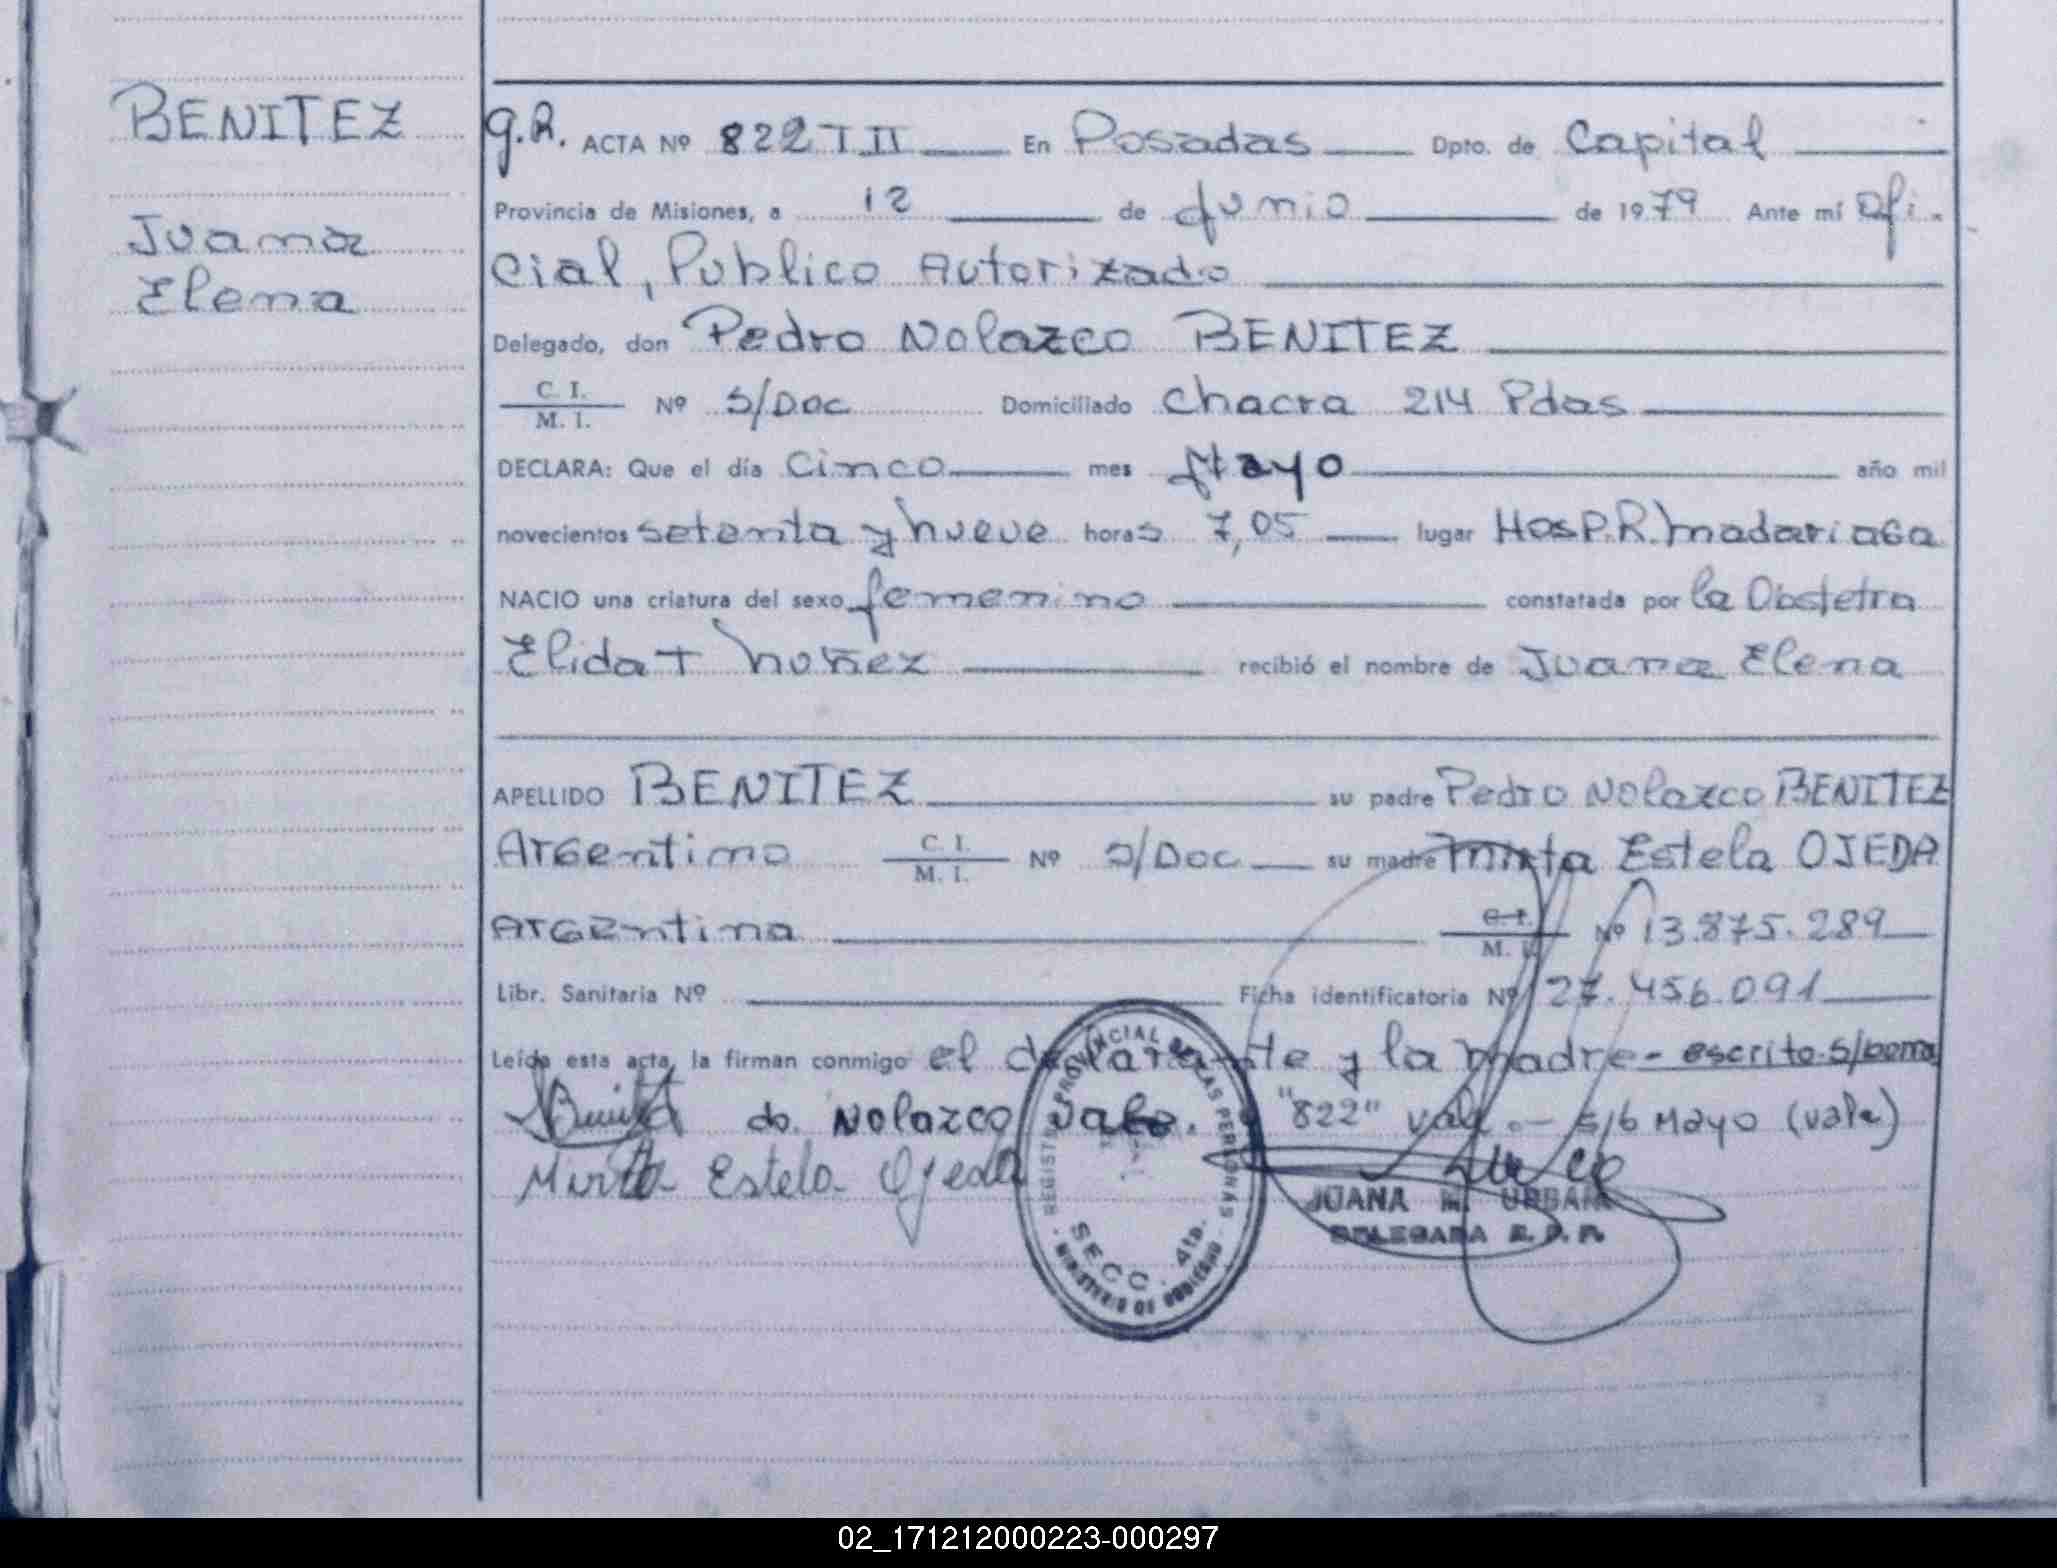 BENITEZ
Juana
Elena
G.R. ACTA Nº 822 T II En Posadas Dpto. de Capital
Provincia de Misiones, a 12 de Junio de 1979 Ante mí Ofi-
cial, Publico Autorizado
Delegado, don Pedro Nolazco BENITEZ
C. I.
M. I. Nº S/Doc Domiciliado Chacra 214 Pdas
DECLARA: Que el día Cinco mes Mayo año mil
novecientos setenta y nueve horas 7,05 lugar Hosp. R. Madariaga
NACIO una criatura del sexo femenino constatada por la Obstetra
Elida T Nuñez recibió el nombre de Juana Elena
APELLIDO BENITEZ su padre Pedro Nolazco BENITEZ
Argentino C. I.
M. I. Nº S/Doc su madre Mirta Estela OJEDA
Argentina C. I.
M. I. Nº 13.875.289
Libr. Sanitaria Nº Ficha identificatoria Nº 27.456.091
Leída esta acta, la firman conmigo el declarante y la madre - escrito S/
Nolazco Vale. "822" vale.- s/b Mayo (vale)
Mirta Estela Ojeda
REGISTRO PROVINCIAL DE LAS PERSONAS
SECC. 4ta.
MINISTERIO DE GOBIERNO
JUANA
DELEGADA R. P. P.
02_171212000223-000297